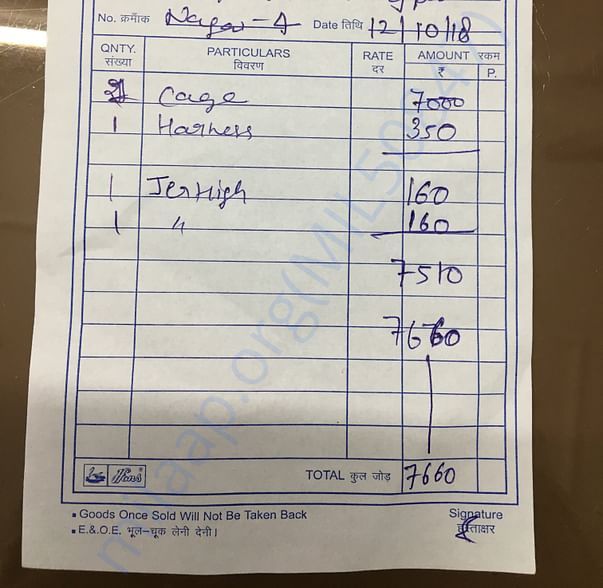 No. क्रमाँक Nagar-4 Date तिथि 12/10/18
QNTY. PARTICULARS RATE AMOUNT रकम
संख्या विवरण दर ₹ P.
Cage 7000
1 Harness 350
1 JerHigh 160
1 〃 160
7510
7660
TOTAL कुल जोड़ 7660
▪ Goods Once Sold Will Not Be Taken Back Signature
▪ E.&O.E. भूल–चूक लेनी देनी। हस्ताक्षर